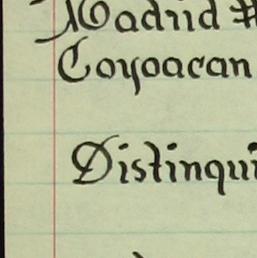 Madrid #
Coyoacan
Distingui